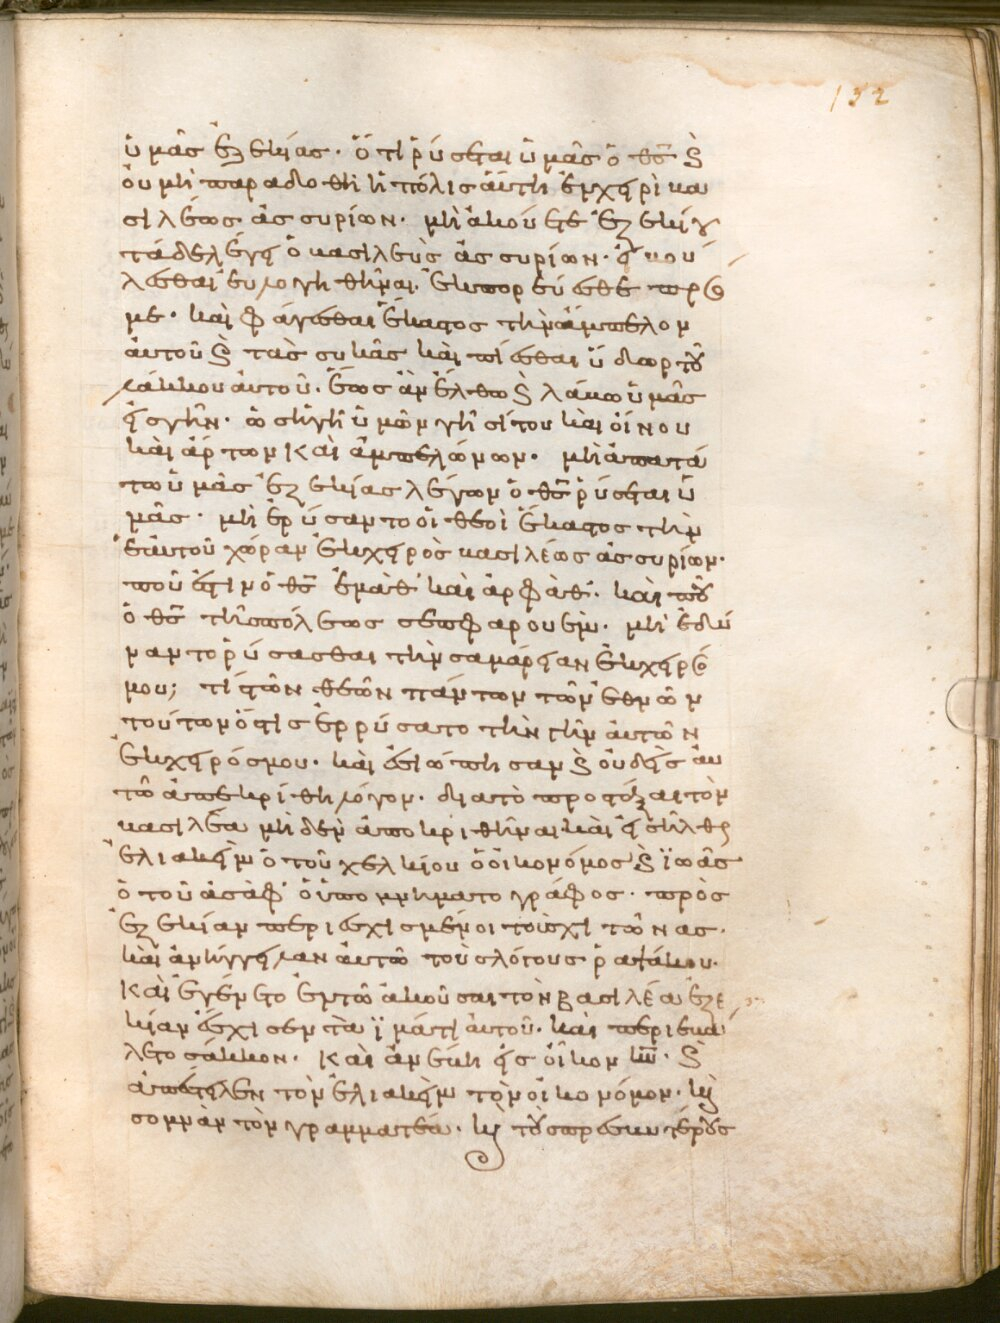 132
ὑμᾶς ἐζεκίας· ὅτι ῥύσεται ὑμᾶς ὁ θς̅ ϗ
οὐ μὴ παραδοθῆ ἡ πόλις αὕτη ἐν χειρὶ βα
σιλέως ἀσσυρίων· μὴ ἀκούετε ἐζεκίου
τάδε λέγει ὁ βασιλεὺς ἀσσυρίων· εἰ βού
λεσθαι εὐλογηθῆναι· ἐκπορεύεσθε πρός
με· καὶ φάγεσθαι ἕκαστος τὴν ἄμπελον
αὐτοῦ ϗ τὰς συκᾶς καὶ πίεσθαι ὕδωρ τοῦ
λάκκου αὐτοῦ· ἕως ἂν ἔλθω ϗ λάβω ὑμᾶς
εἰς γῆν· ὡς ἡ γῆ ὑμῶν γῆ σίτου καὶ οἴνου
καὶ ἄρτων καὶ ἀμπελώνων· μὴ ἀπατά
τω ὑμᾶς ἐζεκίας λέγων ὁ θς̅ ῥύσεται ὑ
μᾶς· μὴ ἐρύσαντο οἱ θεοὶ ἕκαστος τὴν
ἑαυτοῦ χώραν ἐκ χειρὸς βασιλέως ἀσσυρίων·
ποῦ ἐστιν ὁ θς̅ ἐμὰθ καὶ ἀρφάθ· καὶ ποῦ
ὁ θς̅ τῆς πόλεως σεπφαρουείμ· μὴ ἐδύ
ναντο ῥύσασθαι τὴν σαμάρειαν ἐκ χειρός
μου; τίς τῶν θεῶν πάντων τῶν ἐθνῶν
τούτων ὅστις ἐρρύσατο τὴν γῆν αὐτῶν
ἐκ χειρός μου· καὶ ἐσιώπησαν ϗ οὐδεὶς αυ
τῶ ἀπεκρίθη λόγον· διὰ τὸ προστάξαι τὸν
βασιλέα μὴ δὲν ἀποκριθῆναι καὶ εἰσῆλθε
ἐλιακεὶμ ὁ τοῦ χελκίου ὁ οἰκονόμος ϗ ϊωᾶς
ὁ τοῦ ἀσὰφ ὁ ὑπομνηματογράφος· πρὸς
ἐζεκίαν περιεσχισμένοι τοὺς χιτῶνας·
καὶ ἀνήγγειλαν αὐτῶ τοὺς λόγους ῥαψάκου·
Καὶ ἐγένετο ἐν τῶ ἀκοῦσαι τὸν βασιλέα ἐζε
κίαν ἔσχισεν τὰ ϊμάτια αὐτοῦ· καὶ περιεβά
λετο σάκκον· καὶ ἀνέβη εἰς οἶκον κυ̅· ϗ
ἀπέστειλεν τὸν ἐλιακεὶμ τὸν οἰκονόμον· καὶ
σομνὰν τὸν γραμματέα· καὶ τοὺς πρεσβυτέρους